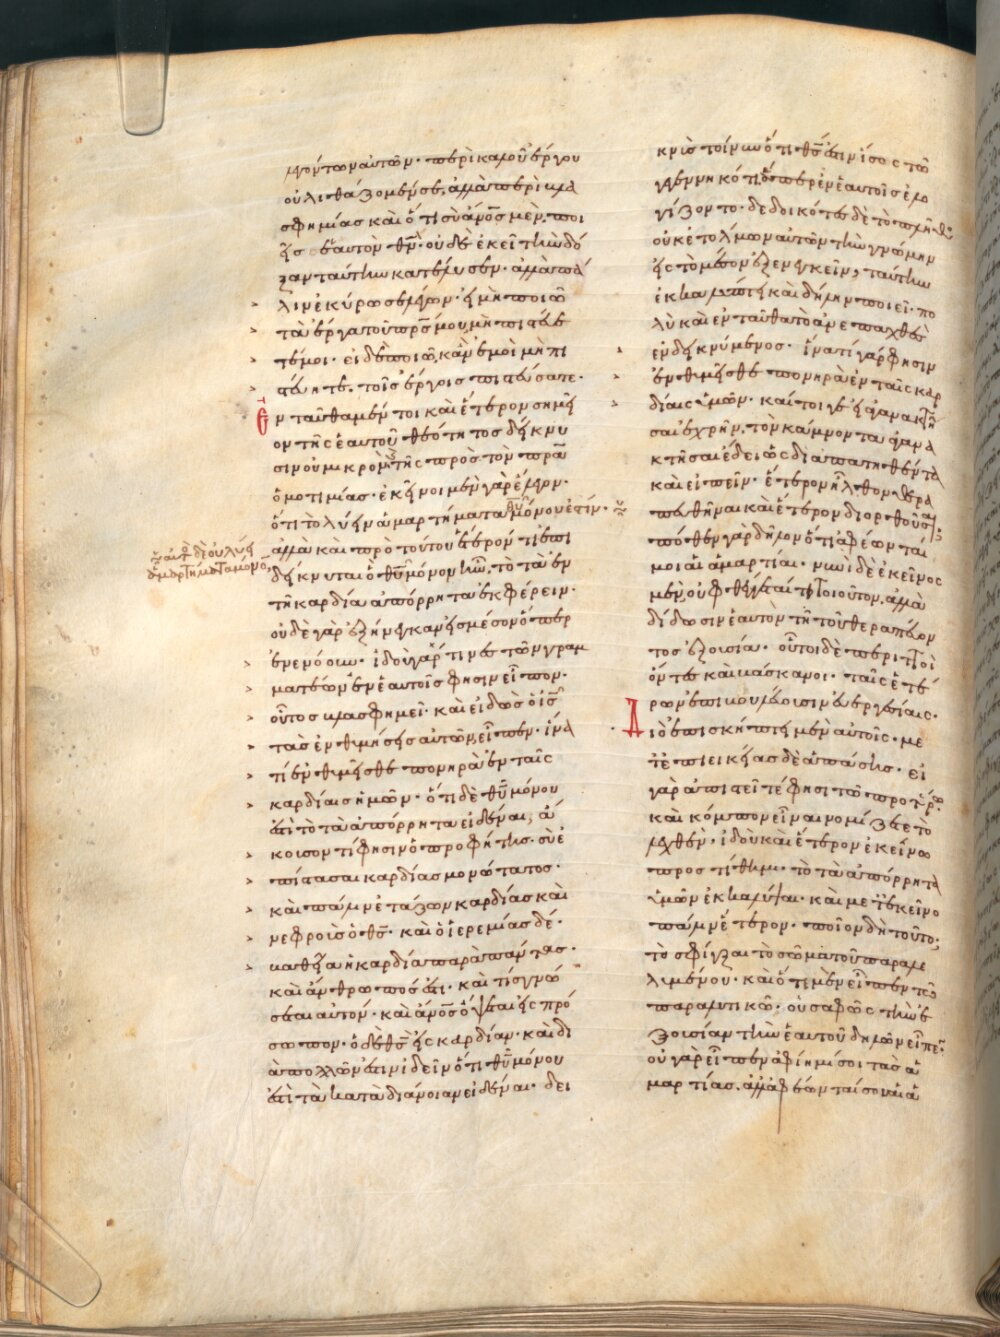 γόντων αὐτῶν· περὶ καλοῦ ἔργου
οὐ λιθάζομέν σε, ἀλλὰ περὶ βλα
σφημίας καὶ ὅτι σὺ ἄνος μὲν ποι
εῖς σεαυτὸν θν· οὐδὲ ἐκεῖ τὴν δό
ξαν ταύτην κατέλυσεν· ἀλλὰ πά
λιν ἐκύρωσε λέγων· εἰ μὴ ποιῶ
τὰ ἔργα τοῦ πρς μου, μὴ πιστεύε
τέ μοι· εἰ δὲ ποιῶ, κἂν ἐμοὶ μὴ πι
στεύητε· τοῖς ἔργοις πιστεύσατε·
Ἐνταῦθα μέντοι καὶ ἕτερον σημεῖ
ον τῆς ἑαυτοῦ θεότητος δείκνυ
σιν οὐ μικρὸν, τῆς πρὸς τὸν πρα
ὁμοτιμίας· ἐκεῖνοι μὲν γὰρ ἔλεγον·
ὅτι τὸ λύειν ἁμαρτήματα θυ μόνον ἐστίν·
αὐτὸς δὲ οὐ λύει
ἁμαρτήματα μόνον
ἀλλὰ καὶ πρὸ τούτου ἕτερόν τι ἐπι
δείκνυται ὃ θυ μόνον ἦν, τὸ τὰ ἐν
τῇ καρδίᾳ ἀπόρρητα ἐκφέρειν·
οὐδὲ γὰρ ἐξήνεγκαν εἰς μέσον ὅπερ
ἐνενόουν· ἰδοὺ γάρ τινες τῶν γραμ
ματέων ἐν ἑαυτοῖς φησιν εἶπον·
οὗτος βλασφημεῖ· καὶ εἰδὼς ὁ ις
τὰς ἐνθυμήσεις αὐτῶν, εἶπεν· ἵνα
τί ἐνθυμεῖσθε πονηρὰ ἐν ταῖς
καρδίαις ἡμῶν· ὅτι δὲ θυ μόνου
ἐστὶ τὸ τὰ ἀπόρρητα εἰδέναι, ἄ
κουσον τί φησιν ὁ προφήτης· σὺ ἐ
πίστασαι καρδίας μονώτατος·
καὶ πάλιν ἐτάζων καρδίας καὶ
νεφροὺς ὁ θς· καὶ ὁ ἱερεμίας δέ·
βαθεῖα ἡ καρδία παρὰ πάντας·
καὶ ἄνθρωπός ἐστι· καὶ τίς γνώ
σεται αὐτόν· καὶ ἄνος ὄψεται εἰς πρό
σωπον· ὁ δὲ θς εἰς καρδίαν· καὶ δι
ὰ πολλῶν ἔστιν ἰδεῖν ὅτι θυ μόνου
ἐστὶ τὰ κατὰ διάνοιαν εἰδέναι· δει
κνὺς τοίνυν ὅτι θς ἐστιν ἴσος τῷ
γεννηκότι, ὅπερ ἐν ἑαυτοῖς ἐλο
γίζοντο· δεδοικότες δὲ τὸ πλῆθος
οὐκ ἐτόλμων αὐτῶν τὴν γνώμην
εἰς τὸ μέσον ἐξενεγκεῖν, ταύτην
ἐκκαλύπτει καὶ δήλην ποιεῖ· πο
λὺ καὶ ἐνταῦθα τὸ ἀνεπαχθὲς
ἐνδεικνύμενος· ἵνα τί γάρ φησιν
ἐνθυμεῖσθε πονηρὰ ἐν ταῖς καρ
δίαις ὑμῶν· καίτοι γε εἰ ἀγανακτῆ
σαι ἐχρῆν, τὸν κάμνοντα ἀγανα
κτῆσαι ἔδει ὡς διαπατηθέντα
καὶ εἰπεῖν· ἕτερον ἦλθον θερα
πευθῆναι καὶ ἕτερον διορθοῦσαι;
πόθεν γὰρ δῆλον ὅτι ἀφέωνταί
μοι αἱ ἁμαρτίαι· νυνὶ δὲ ἐκεῖνος
μὲν, οὐ φθέγγεταί τι τοιοῦτον, ἀλλὰ
δίδωσιν ἑαυτὸν τῇ τοῦ θεραπεύον
τος ἐξουσίᾳ· οὗτοι δὲ περιττοὶ
ὄντες καὶ βάσκανοι· ταῖς ἑτέ
ρων ἐπιβουλεύουσιν εὐεργεσίαις·
Διὸ ἐπισκήπτει μὲν αὐτοῖς· με
τὰ ἐπιεικείας δὲ ἁπάσης· εἰ
γὰρ ἀπιστεῖτέ φησι τῷ προτέρῳ
καὶ κόμπον εἶναι νομίζετε τὸ
λεχθὲν· ἰδοὺ καὶ ἕτερον ἐκείνῳ
προστίθημι· τὸ τὰ ἀπόρρητα
ὑμῶν ἐκκαλύψαι· καὶ μετ' ἐκεῖνο
πάλιν ἕτερον· ποῖον δὴ τοῦτο;
τὸ σφίγξαι τὸ σῶμα τοῦ παραλε
λυμένου· καὶ ὅτε μὲν εἶπεν τῷ
παραλυτικῷ· οὐ σαφῶς τὴν ἐ
ξουσίαν τὴν ἑαυτοῦ δηλῶν εἶπεν·
οὐ γὰρ εἶπεν ἀφίημί σοι τὰς ἁ
μαρτίας. ἀλλ' ἀφέωνταί σου αἱ ἁ